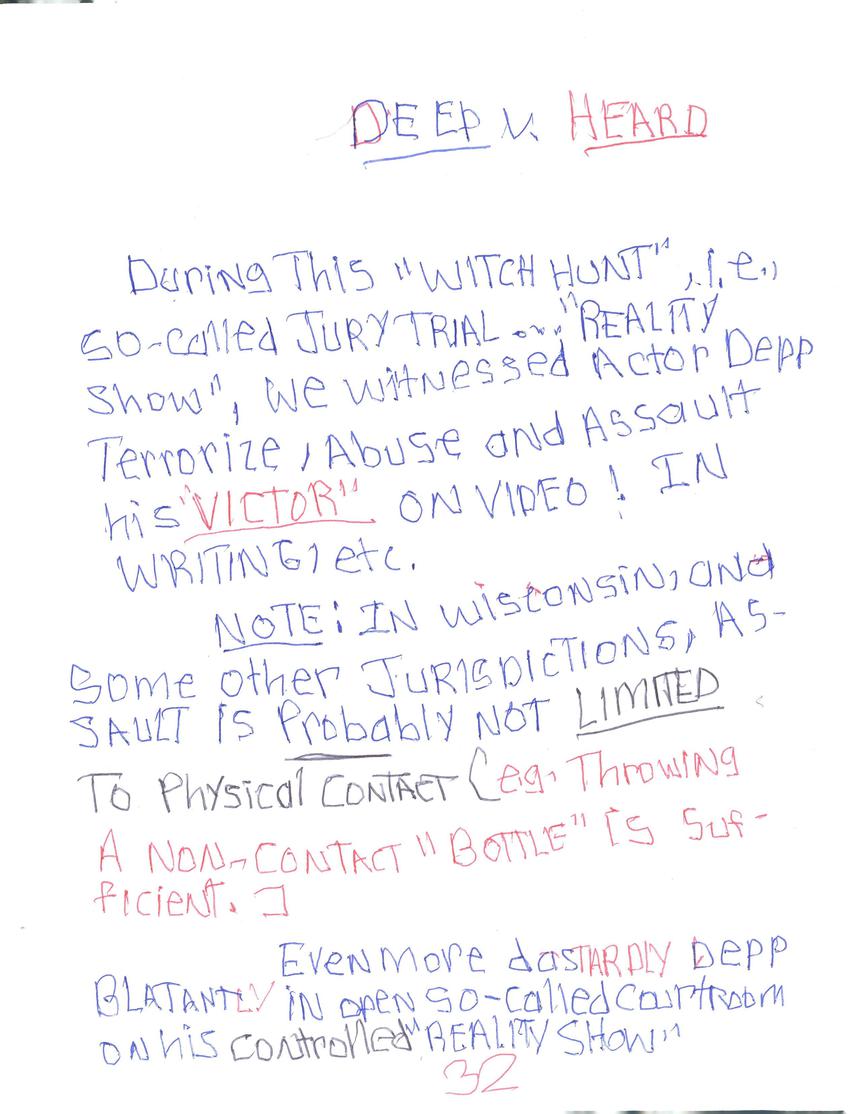 DEEP v. HEARD
During This "WITCH HUNT", i.e.,
so-called JURY TRIAL ... "REALITY
Show", we witnessed Actor Depp
Terrorize, Abuse and Assault
his "VICTOR" ON VIDEO! IN
WRITING, etc.
NOTE: IN Wisconsin, and
Some other JURISDICTIONS, AS-
SAULT is Probably NOT LIMITED
To Physical CONTACT (eg. Throwing
A NON-CONTACT "BOTTLE" is Suf-
ficient.]
Even More dasTARDLY Depp
BLATANTLY in open so-called courtroom
on his controlled "REALITY SHOW"
32